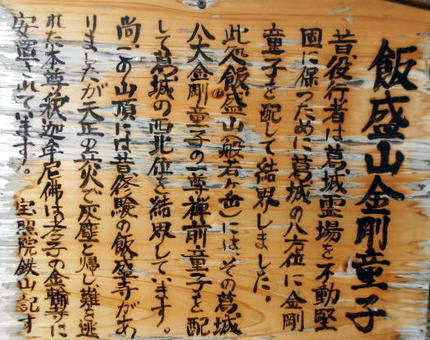 飯盛山金剛童子
昔役行者は葛城霊場を不動堅
固に保つために葛城の八方位に金剛
童子を配して結界しました。
此処飯盛山(般若ヶ岳)にはその葛城
八大金剛童子の一尊禅前童子を配
して葛城の西北位を結界しています。
尚、この山頂には昔修験の飯盛寺があ
りましたが天正の災で灰塵と帰し難を逃
れた本尊釈迦牟尼佛は孝子の金輪寺に
安置されています。 宝照院鉄山記す